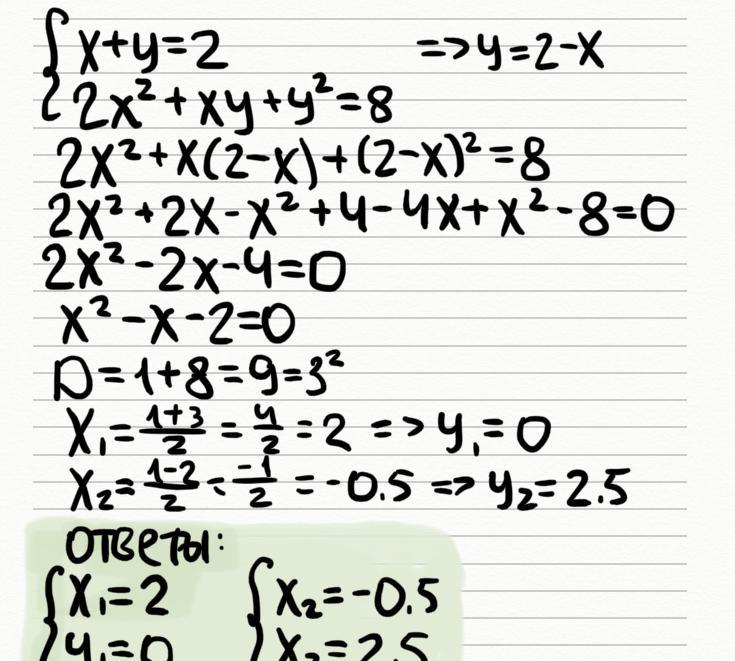 { x+y=2 => y=2-x
2x²+xy+y²=8
2x²+x(2-x)+(2-x)²=8
2x²+2x-x²+4-4x+x²-8=0
2x²-2x-4=0
x²-x-2=0
D=1+8=9=3²
x₁=(1+3)/2=4/2=2 => y₁=0
x₂=(1-2)/2=-1/2=-0.5 => y₂=2.5
ОТВЕТЫ:
{ x₁=2 { x₂=-0.5
y₁=0 x₂=2.5